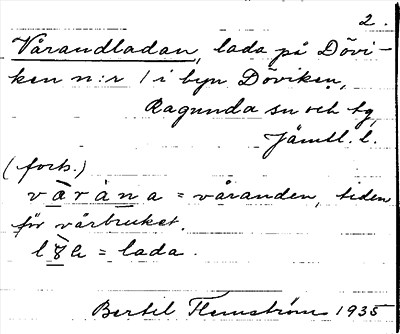 2.
Vårandladan, lada på Dövi-
ken n:r 1 i byn Döviken,
Ragunda sn och tg,
Jämtl. l.
(forts.)
v a r a n a = våranden, tiden
för vårbruket.
= lada.
Bertil Flemström 1935